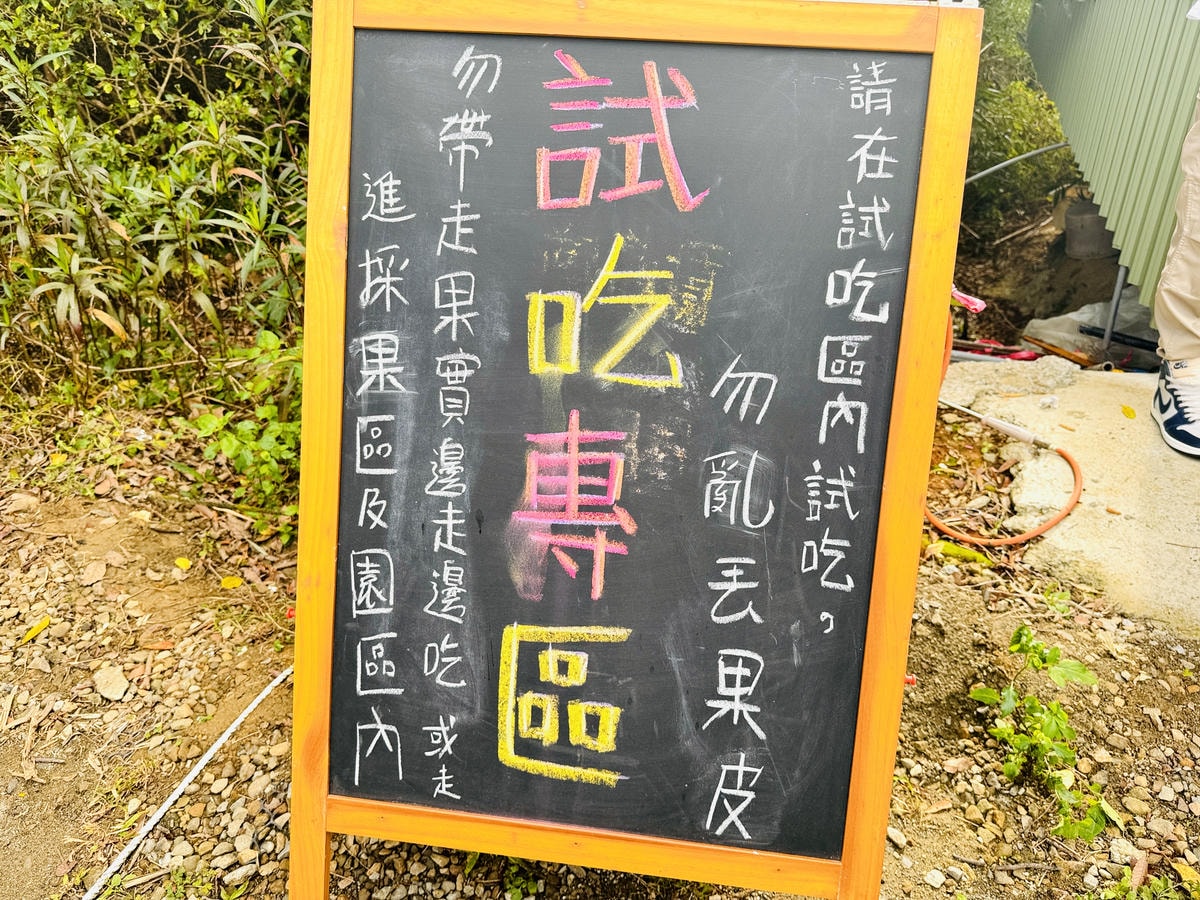 請在試吃區內試吃，
勿亂丟果皮
試吃專區
勿帶走果實邊走邊吃或走
進採果區及園區內